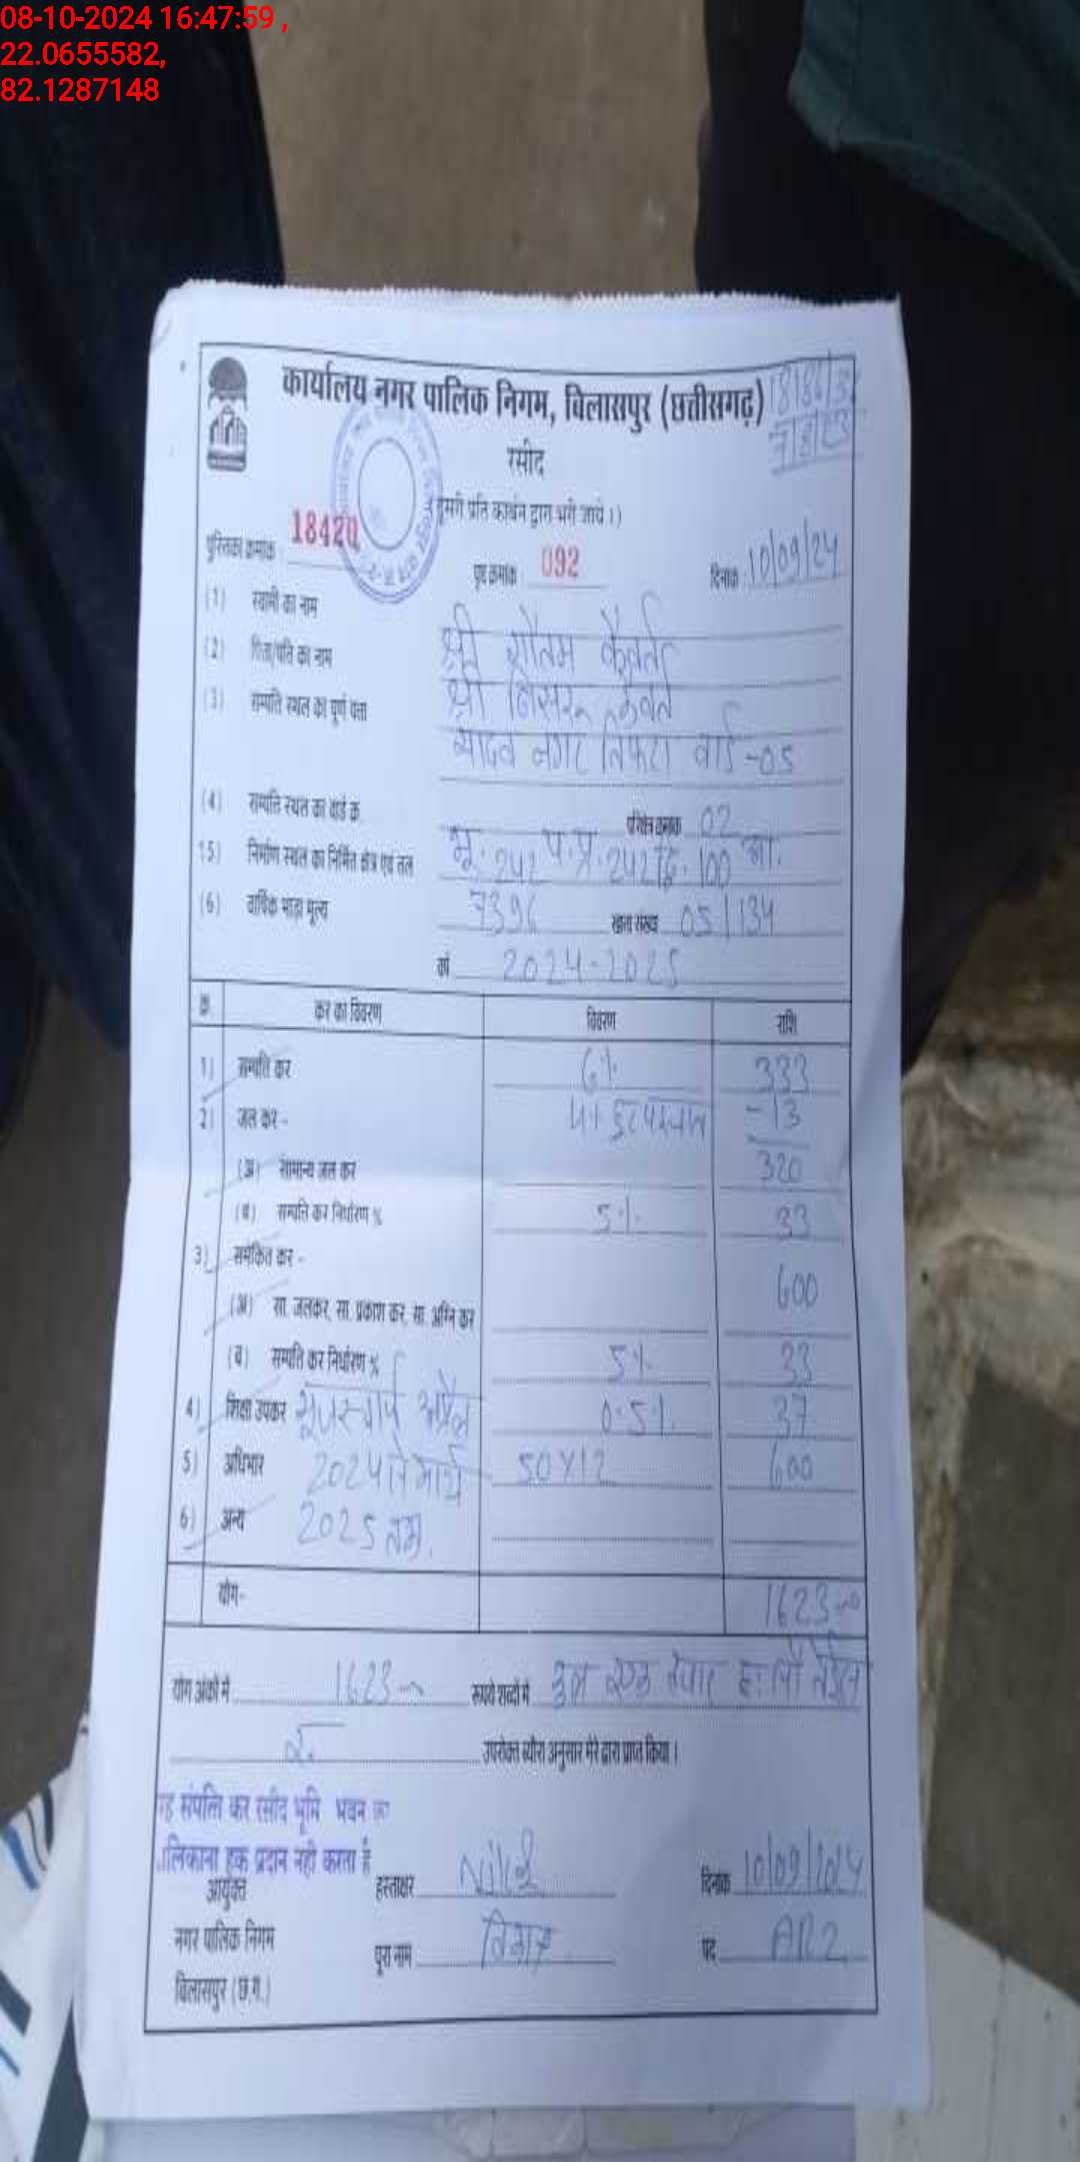 08-10-2024 16:47:59 ,
22.0655582,
82.1287148
कार्यालय नगर पालिक निगम, विलासपुर (छत्तीसगढ़)
रसीद
(दूसरी प्रति कार्बन द्वारा भरी जावे।)
पुस्तिका क्रमांक 18420 पृष्ठ क्रमांक 092 दिनांक 10/09/24
(1) स्वामी का नाम श्री गौतम कैवर्त
(2) पिता/पति का नाम श्री
(3) सम्पत्ति स्थल का पूर्ण पता यादव नगर तिफरा वार्ड -05
(4) सम्पत्ति स्थल का वार्ड क्र. परिक्षेत्र क्रमांक 02
(5) निर्माण स्थल का निर्मित क्षेत्र एवं तल भू. 242 प.प्र. 242 100
(6) वार्षिक भाड़ा मूल्य 7396 खाता संख्या 05/134
वर्ष 2024-2025
क्र. कर का विवरण विवरण राशि
1) सम्पत्ति कर 6% 333
2) जल कर - -13
(अ) सामान्य जल कर 320
(ब) सम्पत्ति कर निर्धारण % 5% 33
3) समेकित कर -
600
(अ) सा. जलकर, सा. प्रकाश कर, सा. अग्नि कर
(ब) सम्पत्ति कर निर्धारण % 5% 33
4) शिक्षा उपकर 0.5% 37
5) अधिभार 50×12 600
6) अन्य
यूजरचार्ज अप्रैल
2024 से मार्च
2025 तक.
योग- 1623
योग अंको में 1623 रूपये शब्दों में एक हजार छः सौ तेईस
रू. उपरोक्त ब्यौरा अनुसार मेरे द्वारा प्राप्त किया।
यह संपत्ति कर रसीद भूमि भवन का
मालिकाना हक प्रदान नही करता है
आयुक्त हस्ताक्षर दिनांक 10/09/2024
नगर पालिक निगम पूरा नाम पद ARI
विलासपुर (छ.ग.)